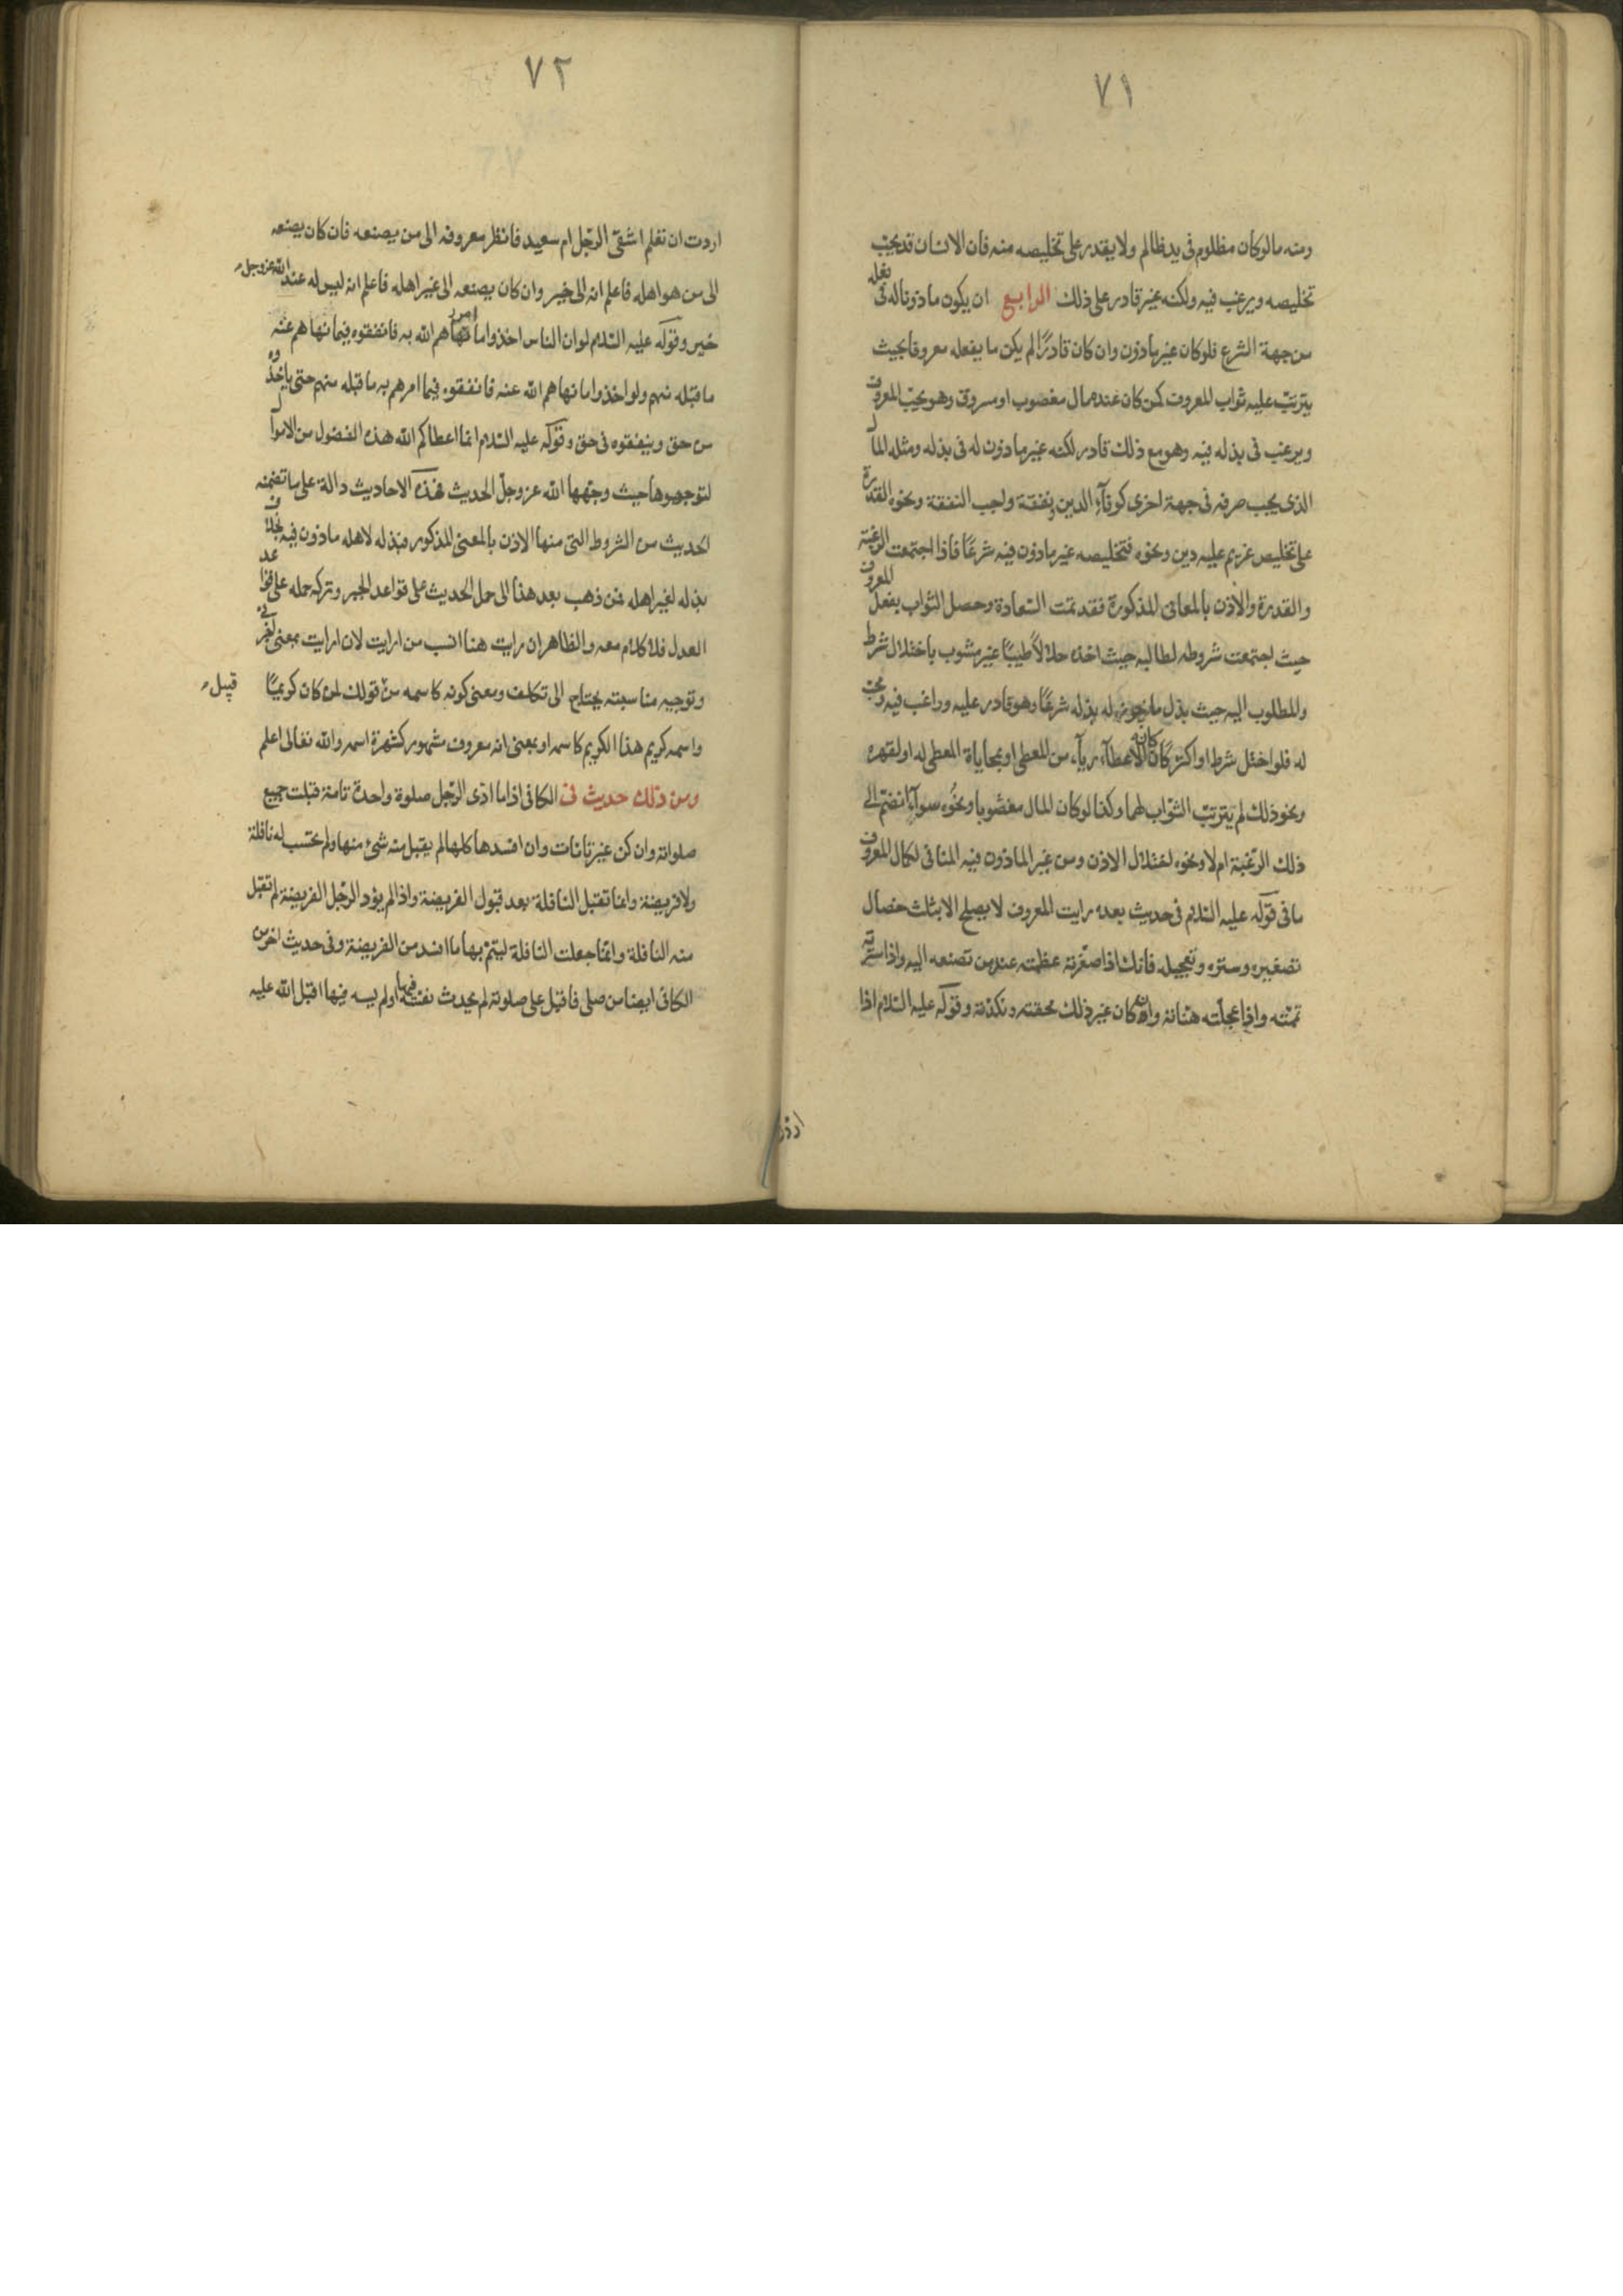 ٧١
ومنه مالوكان مظلوم فى يد ظالم ولا يقدر على تخليصه منه فان الانسان قد يحبّ
تخليصه ويرغب فيه ولكنه غير قادر على ذلك الرابع ان يكون ماذونا له فى فعله
من جهة الشرع فلو كان غير ماذون وان كان قادرًا لم يكن ما يفعله معروفا بحيث
يترتب عليه ثواب المعروف كمن كان عنده مال مغصوب او مسروق وهو يحبّ المعروف
ويرغب فى بذله فيه وهو مع ذلك قادر لكنه غير ماذون له فى بذله ومثله المال
الذى يجب صرفه فى جهة اخرى كوفآء الدين ونفقة واجب النفقة ونحوه القدرة
على تخليص غريم عليه دين ونحوه فتخليصه غير ماذون فيه شرعًا فاذا اجتمعت الرغبة
والقدرة والاذن بالمعانى المذكورة فقد تمت السّعادة وحصل الثواب بفعل المعروف
حيث اجتمعت شروطه لطالبه حيث اخذه حلالاً طيبًا غير مشوب باختلال شرط
وللمطلوب اليه حيث بذل ما يجوز له بذله شرعًا وهو قادر عليه وراغب فيه ومحبّ
له فلو اختل شرط او اكثر كان كانه الاعطآء ريآء من المعطى او بمحاباة المعطى له او لقهره
ونحو ذلك لم يترتب الثّواب لهما وكذا لو كان المال مغصوبا ونحوه سوآء انضمّ الى
ذلك الرّغبة ام لا ونحوه اختلال الاذن ومن غير الماذون فيه المنافى لكمال المعروف
ما فى قوله عليه السّلام فى حديث بعده رايت المعروف لا يصلح الا بثلث خصال
تصغيره وستره وتعجيله فانك اذا صغّرته عظمته عند من تصنعه اليه واذا سترته
تمّمته واذا عجلته هنّأته وان كان غير ذلك محقته ونكدته وقوله عليه السّلام اذا
٧٢
اردت ان تعلم اشقىّ الرجل ام سعيد فانظر معروفه الى من يصنعه فان كان يصنعه
الى من هو اهله فاعلم انه الى خير وان كان يصنعه الى غير اهله فاعلم انه ليس له عند الله عزوجل
خير وقوله عليه السّلام لو ان الناس اخذوا ما امرهم الله به فانفقوه فيما نهاهم عنه
ما قبله منهم ولو اخذوا ما نهاهم الله عنه فانفقوه فيما امرهم به ما قبله منهم حتى ياخذوه
من حق وينفقوه فى حق وقوله عليه السّلام انما اعطاكم الله هذه الفضول من الاموال
لتوجهوها حيث وجّهها الله عز وجلّ الحديث فهذه الاحاديث دالة على ما تضمنه
الحديث من الشروط التى منها الاذن بالمعنى المذكور فبذله لاهله ماذون فيه بخلاف
بذله لغير اهله فمن ذهب بعد هذا الى حمل الحديث على قواعد الجبر وتركه حمله على قواعد
العدل فلا كلام معه والظاهر ان رايت هنا انسب من ارايت لان ارايت بمعنى اخبرنى
وتوجيه مناسبته يحتاج الى تكلف ومعنى كونه كاسمه من قبيل قولك لمن كان كريمًا
واسمه كريم هذا الكريم كاسمه او بمعنى انه معروف مشهور كشهرة اسمه والله تعالى اعلم
ومن ذلك حديث فى الكافى اذا ما ادّى الرّجل صلوة واحدة تامة قبلت جميع
صلواته وان كن غير تامّات وان افسدها كلها لم يقبل منه شئ منها ولم يحتسب له نافلة
ولا فريضة وانما تقبل النافلة بعد قبول الفريضة واذا لم يؤد الرّجل الفريضة لم تقبل
منه النافلة وانّما جعلت النافلة ليتمّ بها ما افسد من الفريضة وفى حديث اخر من
الكافى ايضا من صلى فاقبل على صلوته لم يحدث نفسه فيها او لم يسه فيها اقبل الله عليه